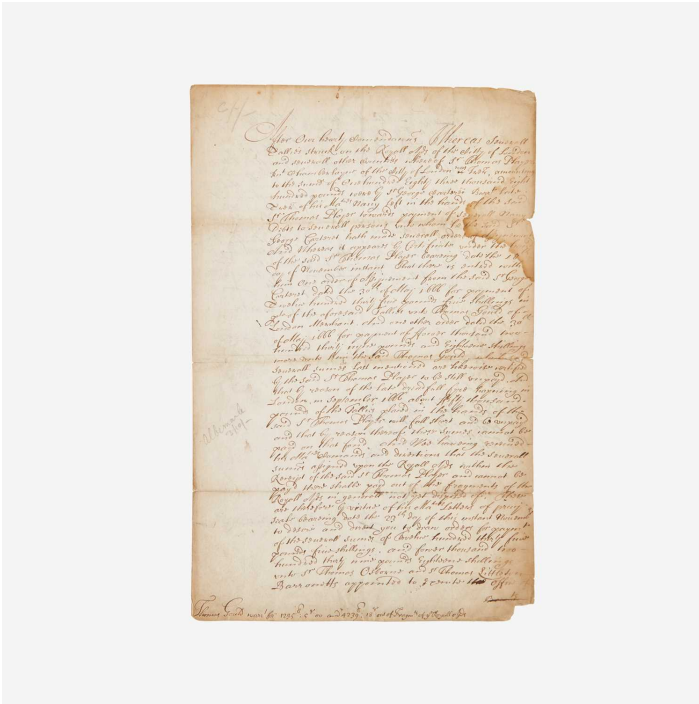 After Our hearty Comendacons Whereas severall
Tallies struck on the Royall Ayde of the Citty of London
and severall other Counties whereof Sr. Thomas Player
Chamberlayne of the Citty of London
to the summ of One hundred Eighty three thousand
hundred pounds were by Sr. George Carteret
of his Mats. Navy left in the hands of the said
Sr. Thomas Player towards payment of severall
Debts to severall persons unto whom
George Carteret hath made severall orders
And whereas it appeares by Certificate under the
of the said Sr. Thomas Player bearing date the
day of November instant That there is
him One order of Assignment from the said Sr. George
Carteret dated the 30th of May 1666 for payment of
Twelve hundred thirty five pounds five shillings in
of the aforesaid Tallies unto Thomas Gould of
London Merchant. And one other order dated the 30
of May 1666 for payment of fower thousand two
hundred thirty nyne pounds and Eighteene shillings
more unto him the said Thomas Gould,
severall summes last mentioned are likewise certifyed
by the said Sr. Thomas Player to be still unpayd, And
that by reason of the late dreadfull fire happening in
London, in September 1666, about fifty thousand
pounds of the Tallies placed in the hands of the
said Sr. Thomas Player will fall short and be unpaid
and that by reason thereof these summes cannot be
paid on that fund. And Wee having received
his Mats. Commands and directions that the severall
summes assigned upon the Royall Ayde within the
Receipt of the said Sr. Thomas Player and cannot be
payd there shalbe paid out of the
Royall Ayde in generall
are therefore by vertue of his Mats. Letters of privy
seale bearing date the day of this instant November
to desire and direct you to draw orders for payment
of the severall summes of Twelve hundred thirty five
pounds five shillings, and fower thousand two
hundred thirty nyne pounds Eighteene shillings
unto Sr. Thomas Osborne and Sr. Thomas Littleton
Barronetts appointed to Execute the office
Thomas Gould